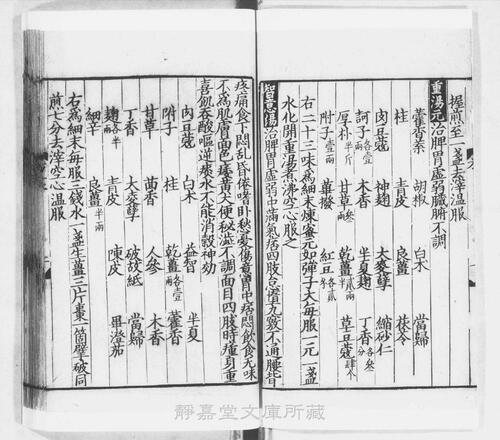 握煎至一盞去滓溫服
重湯元治脾胃虛弱臟腑不調
藿香葉 胡椒 白朮 當歸
桂 青皮 良薑 茯苓
肉豆蔻 神麴 大麥糵 縮砂仁
訶子各壹兩 木香 半夏麴 丁香各叁分
厚朴半斤 甘草兩 乾薑貳兩 草豆蔻肆个
附子壹兩 蓽撥 紅豆各貳
右二十三味為細末煉蜜元如彈子大每服一元一盞
水化開重湯煮沸空心服之
智意傷治脾胃虛弱中滿氣居四肢合九竅不通腰背
疼痛食下悶亂昏倦嗜卧愁憂傷意胃中痞悶飲食无味
不為肌膚面色痿黃大便秘澁不調面目四肢時瘇身重
喜飢吞酸嘔逆痰水不能消穀神効
肉豆蔻 白朮 益智 半夏
附子兩 桂 乾薑各壹兩 藿香
甘草 茴香 人參 木香
丁香 大麥糵 破故紙 當歸
麴各半兩 青皮 陳皮 蓽澄茄
細辛 良薑半兩
右為細末每服三錢水一盞生薑三片棗一箇擘破同
煎七分去滓空心溫服
靜嘉堂文庫所藏